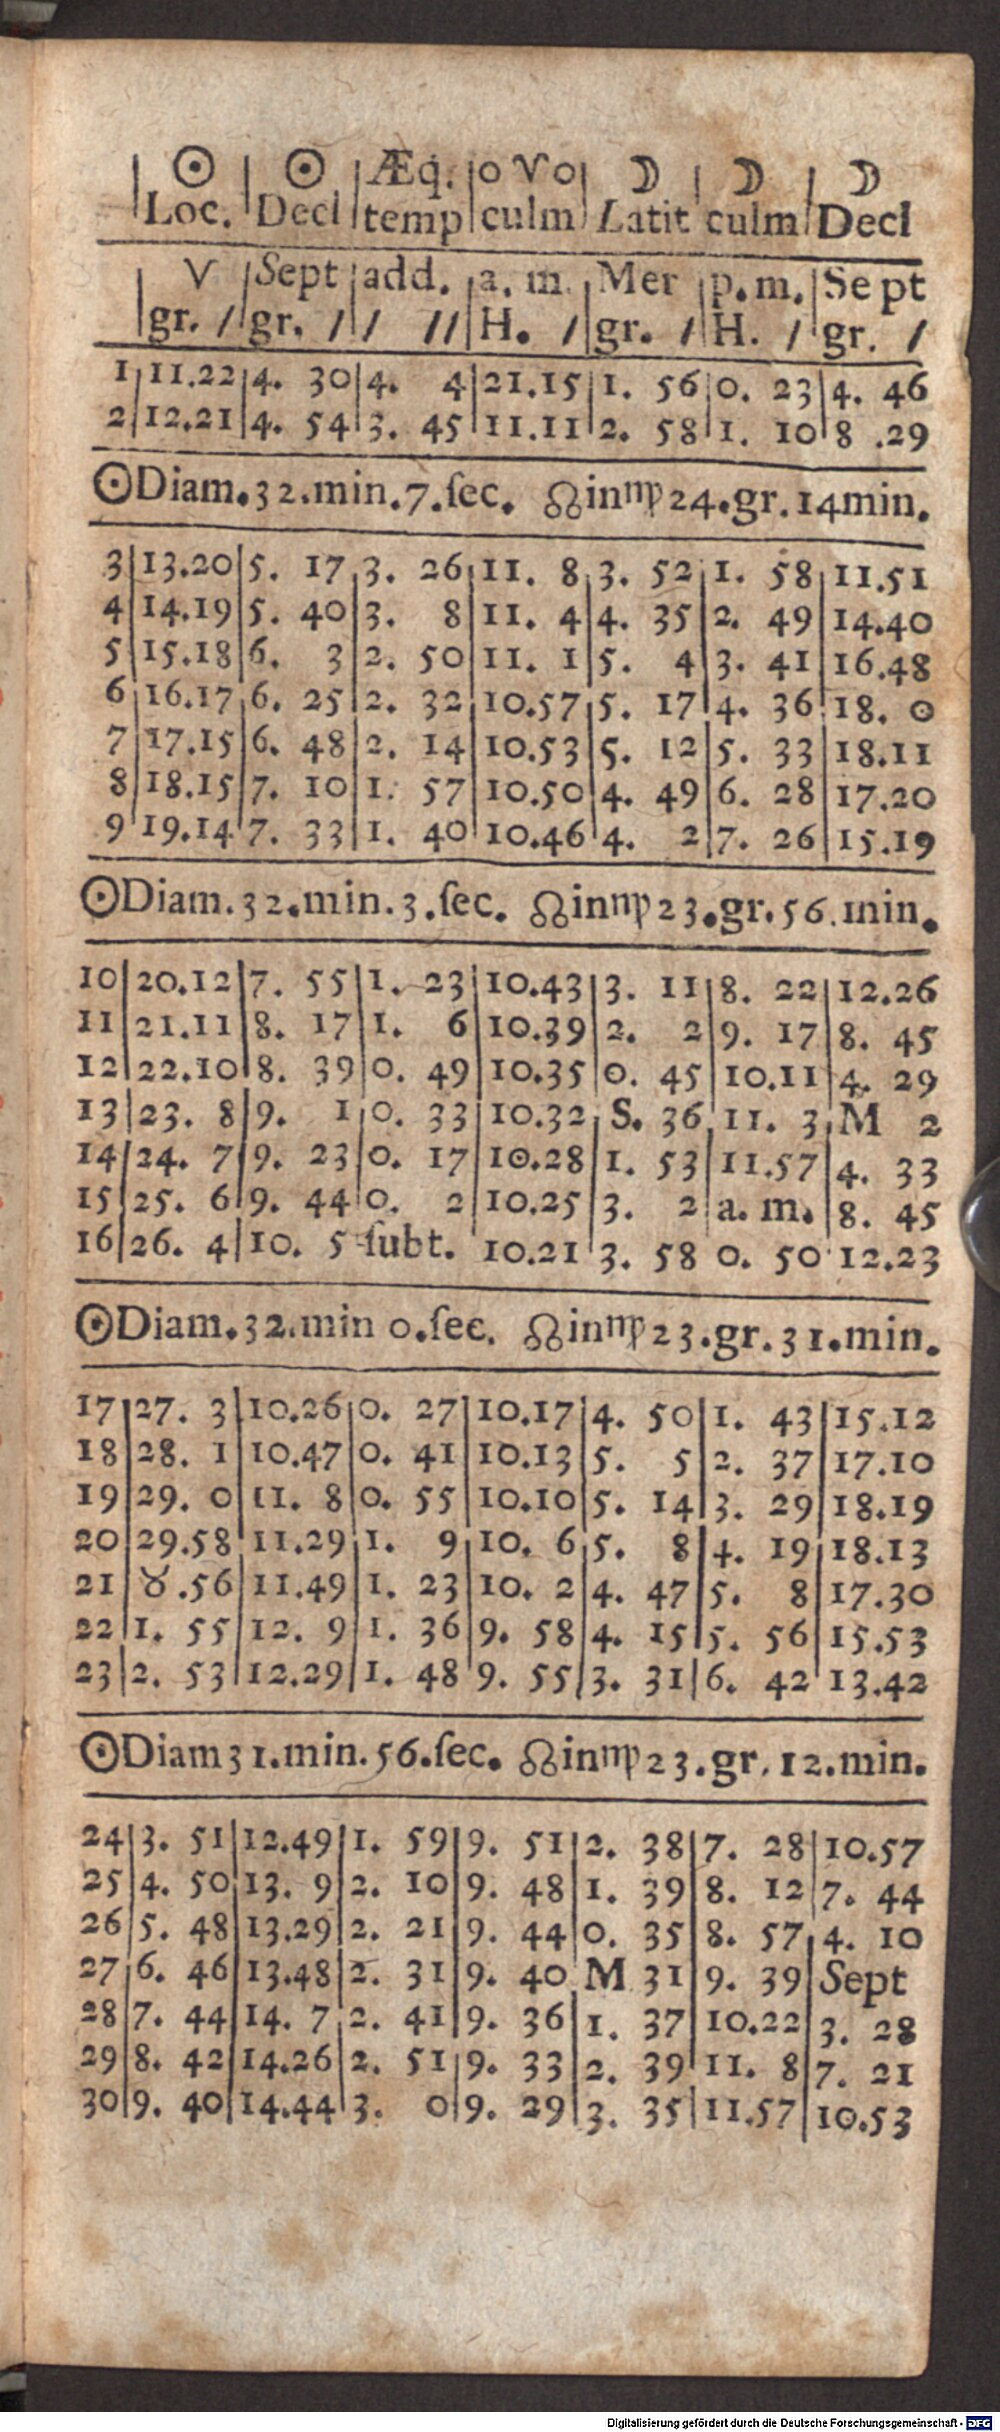 | ☉ | ☉ | Æq. | 0 ♈ 0 | ☽ | ☽ | ☽
| Loc. | Decl | temp | culm | Latit | culm | Decl
| ♈ | Sept | add. | a. m. | Mer | p. m. | Sept
| gr. / | gr. / | / // | H. / | gr. / | H. / | gr. /
1 | 11.22 | 4. 30 | 4. 4 | 21.15 | 1. 56 | 0. 23 | 4. 46
2 | 12.21 | 4. 54 | 3. 45 | 11.11 | 2. 58 | 1. 10 | 8 .29
☉Diam.32.min.7.ſec. ☊in♍24.gr.14min.
3 | 13.20 | 5. 17 | 3. 26 | 11. 8 | 3. 52 | 1. 58 | 11.51
4 | 14.19 | 5. 40 | 3. 8 | 11. 4 | 4. 35 | 2. 49 | 14.40
5 | 15.18 | 6. 3 | 2. 50 | 11. 1 | 5. 4 | 3. 41 | 16.48
6 | 16.17 | 6. 25 | 2. 32 | 10.57 | 5. 17 | 4. 36 | 18. 0
7 | 17.15 | 6. 48 | 2. 14 | 10.53 | 5. 12 | 5. 33 | 18.11
8 | 18.15 | 7. 10 | 1. 57 | 10.50 | 4. 49 | 6. 28 | 17.20
9 | 19.14 | 7. 33 | 1. 40 | 10.46 | 4. 2 | 7. 26 | 15.19
☉Diam.32.min.3.ſec. ☊in♍23.gr.56.min.
10 | 20.12 | 7. 55 | 1. 23 | 10.43 | 3. 11 | 8. 22 | 12.26
11 | 21.11 | 8. 17 | 1. 6 | 10.39 | 2. 2 | 9. 17 | 8. 45
12 | 22.10 | 8. 39 | 0. 49 | 10.35 | 0. 45 | 10.11 | 4. 29
13 | 23. 8 | 9. 1 | 0. 33 | 10.32 | S. 36 | 11. 3 | M 2
14 | 24. 7 | 9. 23 | 0. 17 | 10.28 | 1. 53 | 11.57 | 4. 33
15 | 25. 6 | 9. 44 | 0. 2 | 10.25 | 3. 2 | a. m. | 8. 45
16 | 26. 4 | 10. 5 ſubt. 10.21 | 3. 58 0. 50 12.23
☉Diam.32.min 0.ſec. ☊in♍23.gr.31.min.
17 | 27. 3 | 10.26 | 0. 27 | 10.17 | 4. 50 | 1. 43 | 15.12
18 | 28. 1 | 10.47 | 0. 41 | 10.13 | 5. 5 | 2. 37 | 17.10
19 | 29. 0 | 11. 8 | 0. 55 | 10.10 | 5. 14 | 3. 29 | 18.19
20 | 29.58 | 11.29 | 1. 9 | 10. 6 | 5. 8 | 4. 19 | 18.13
21 | ♉.56 | 11.49 | 1. 23 | 10. 2 | 4. 47 | 5. 8 | 17.30
22 | 1. 55 | 12. 9 | 1. 36 | 9. 58 | 4. 15 | 5. 56 | 15.53
23 | 2. 53 | 12.29 | 1. 48 | 9. 55 | 3. 31 | 6. 42 | 13.42
☉Diam31.min.56.ſec. ☊in♍23.gr.12.min.
24 | 3. 51 | 12.49 | 1. 59 | 9. 51 | 2. 38 | 7. 28 | 10.57
25 | 4. 50 | 13. 9 | 2. 10 | 9. 48 | 1. 39 | 8. 12 | 7. 44
26 | 5. 48 | 13.29 | 2. 21 | 9. 44 | 0. 35 | 8. 57 | 4. 10
27 | 6. 46 | 13.48 | 2. 31 | 9. 40 | M 31 | 9. 39 | Sept
28 | 7. 44 | 14. 7 | 2. 41 | 9. 36 | 1. 37 | 10.22 | 3. 28
29 | 8. 42 | 14.26 | 2. 51 | 9. 33 | 2. 39 | 11. 8 | 7. 21
30 | 9. 40 | 14.44 | 3. 0 | 9. 29 | 3. 35 | 11.57 | 10.53
Digitalisierung gefördert durch die Deutsche Forschungsgemeinschaft - DFG